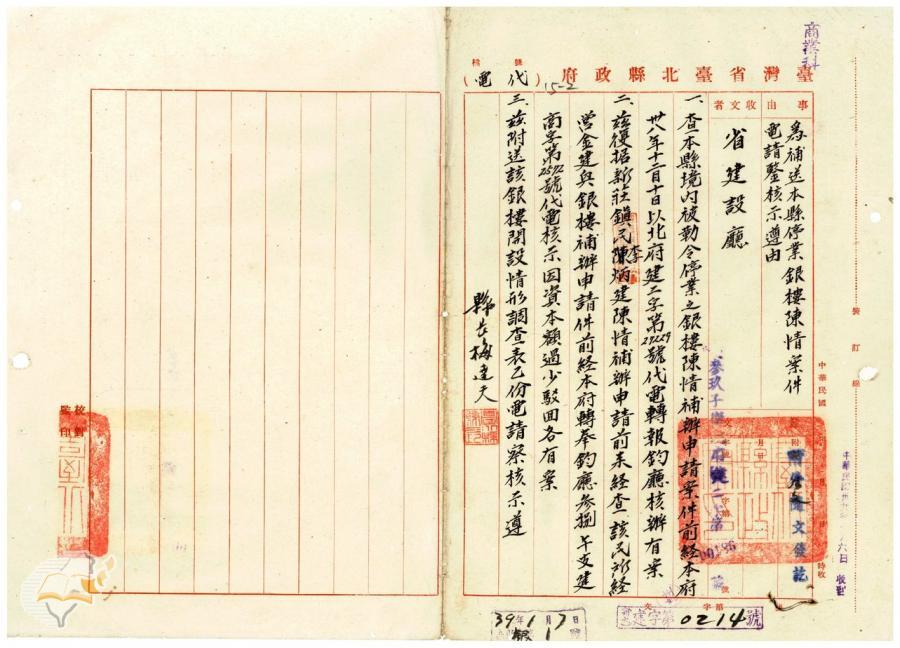 商業科
臺灣省臺北縣政府
代電
15-2
事由
收文者
為補送本縣停業銀樓陳情案件
電請鑒核示遵由
省建設廳
一、查本縣境內被勒令停業之銀樓陳情補辦申請案件前經本府
卅八年十二月十日以北府建工字第27229號代電轉報鈞廳核辦有案
二、茲復据新莊鎮民李陳炳建陳情補辦申請前來經查該民所經
營金建興銀樓補辦申請件前経本府轉奉鈞廳參捌午支建
商字第2592號代電核示因資本額過少駁回各有案
三、茲附送該銀樓開設情形調查表乙份電請察核示遵
縣長梅達天
中華民國
裝訂線
建字第0214號
39年1月7日
校對
監印